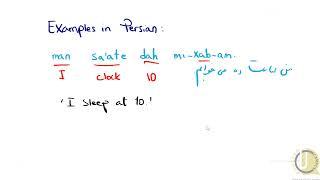 Examples in Persian:
man sa'ate dah mi-xab-am.
I clock 10 من ساعت ده می خوابم
'I sleep at 10.'